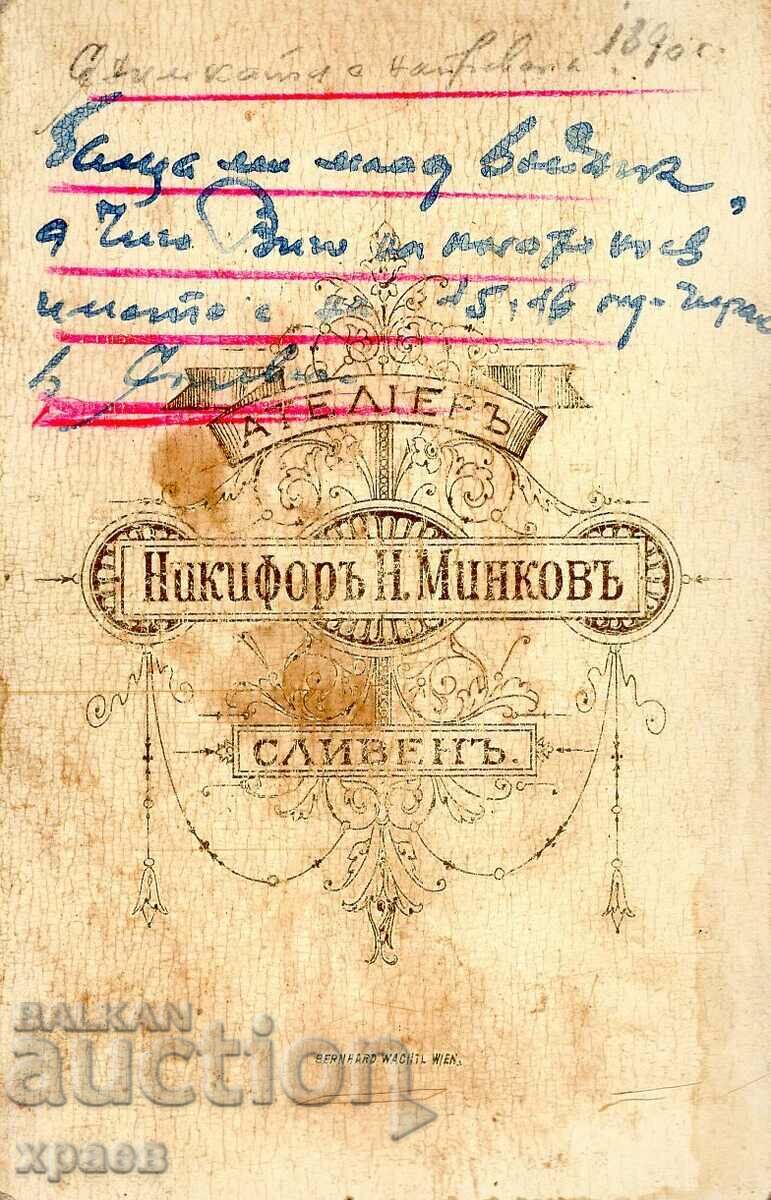 Снимката е направена 1890 г.
Баща ми млад войник,
а Чичо
името е на 15, 16 год.
в Сливен
АТЕЛІЕРЪ
НИКИФОРЪ Н. МИНКОВЪ
СЛИВЕНЪ.
BERNHARD WACHTL WIEN.
BALKAN
auction
храев